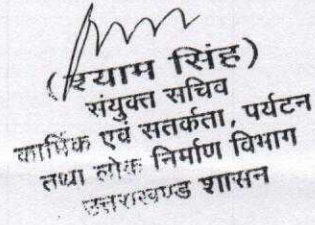 (श्याम सिंह)
संयुक्त सचिव
कार्मिक एवं सतर्कता, पर्यटन
तथा लोक निर्माण विभाग
उत्तराखण्ड शासन